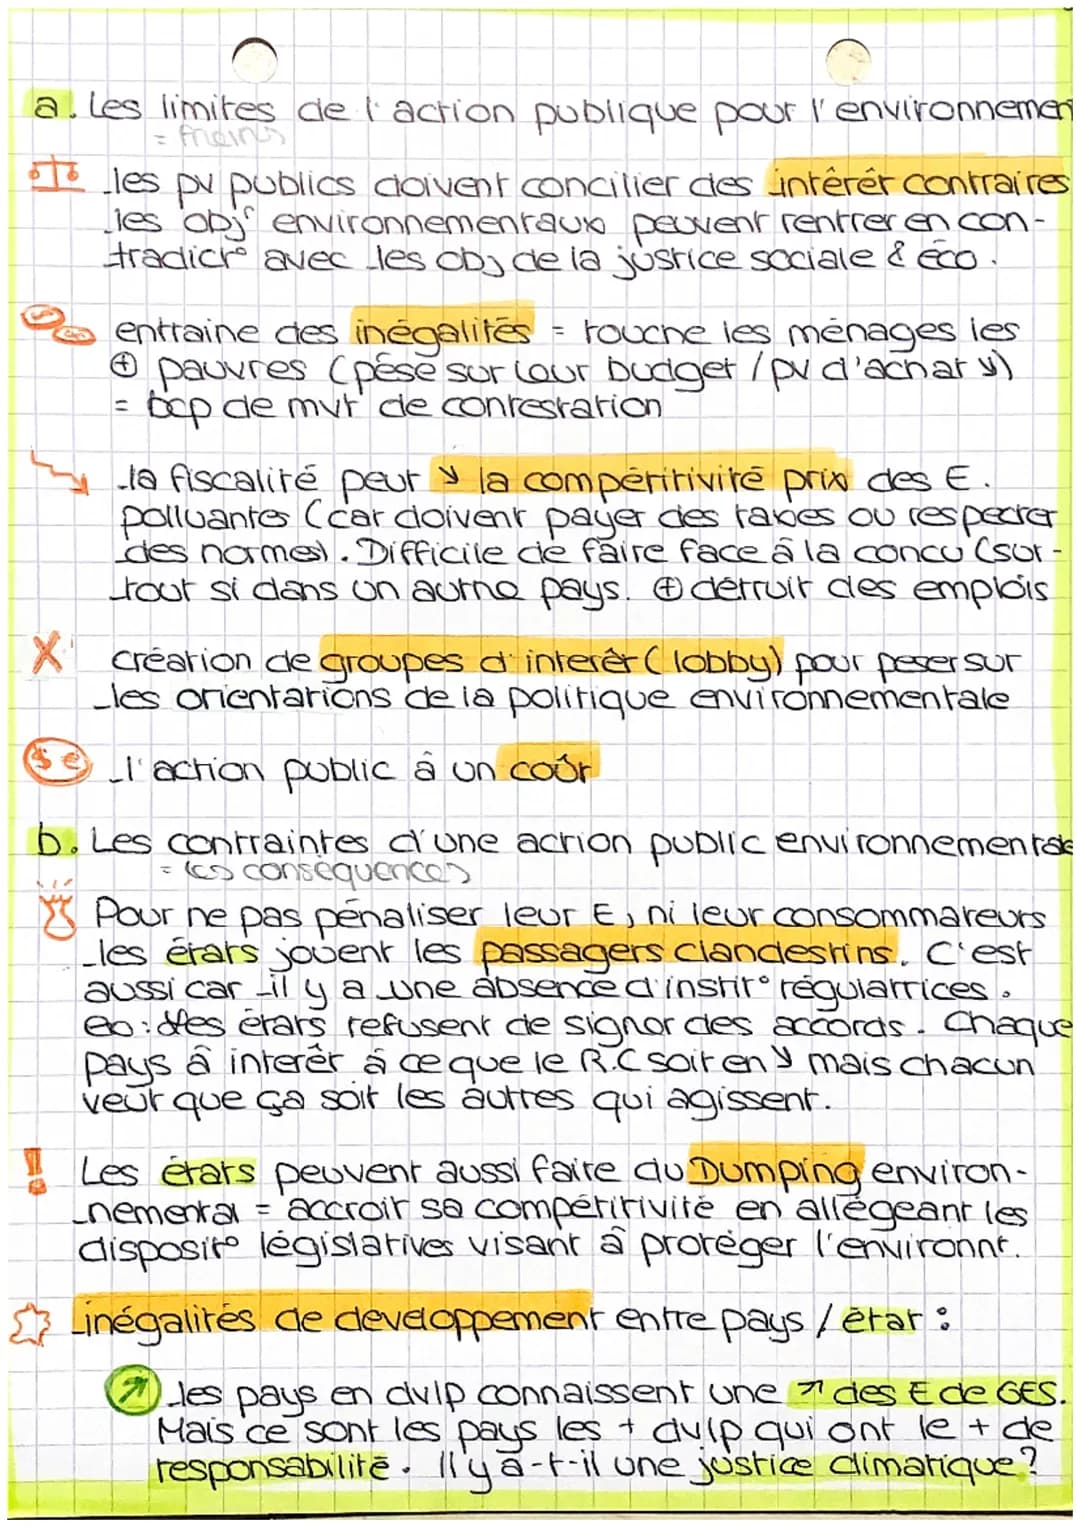 a. Les limites de l'action publique pour l'environnemen
= freins
les pv publics doivent concilier des intérêt contraires
les objs environnementaux peuvent rentrer en con-
tradict° avec les obj de la justice sociale & éco.
entraine des inégalités = touche les ménages les
⊕ pauvres (pèse sur leur budget / pv d'achat ↘)
= bcp de mvt de contestation
la fiscalité peut ↘ la compétitivité prix des E.
polluantes (car doivent payer des taxes ou respecter
des normes). Difficile de faire face à la concu (sur-
tout si dans un autre pays. ⊕ détruit des emplois
création de groupes d'interêt (lobby) pour peser sur
les orientations de la politique environnementale
$ €
l'action public à un coût
b. Les contraintes d'une action public environnementale
= les conséquences
Pour ne pas pénaliser leur E, ni leur consommateurs
les états jouent les passagers clandestins. C'est
aussi car il y a une absence d'instit° régulatrices.
ex: des états refusent de signer des accords. Chaque
pays à interêt à ce que le R.C soit en ↘ mais chacun
veut que ça soit les autres qui agissent.
!! Les états peuvent aussi faire du Dumping environ-
nemental = accroit sa compétitivité en allégeant les
disposit° législatives visant à protéger l'environnt.
inégalités de developpement entre pays / état :
↗ les pays en dvlp connaissent une ↗ des E de GES.
Mais ce sont les pays les + dvlp qui ont le + de
responsabilité. Il y a-t-il une justice climatique?